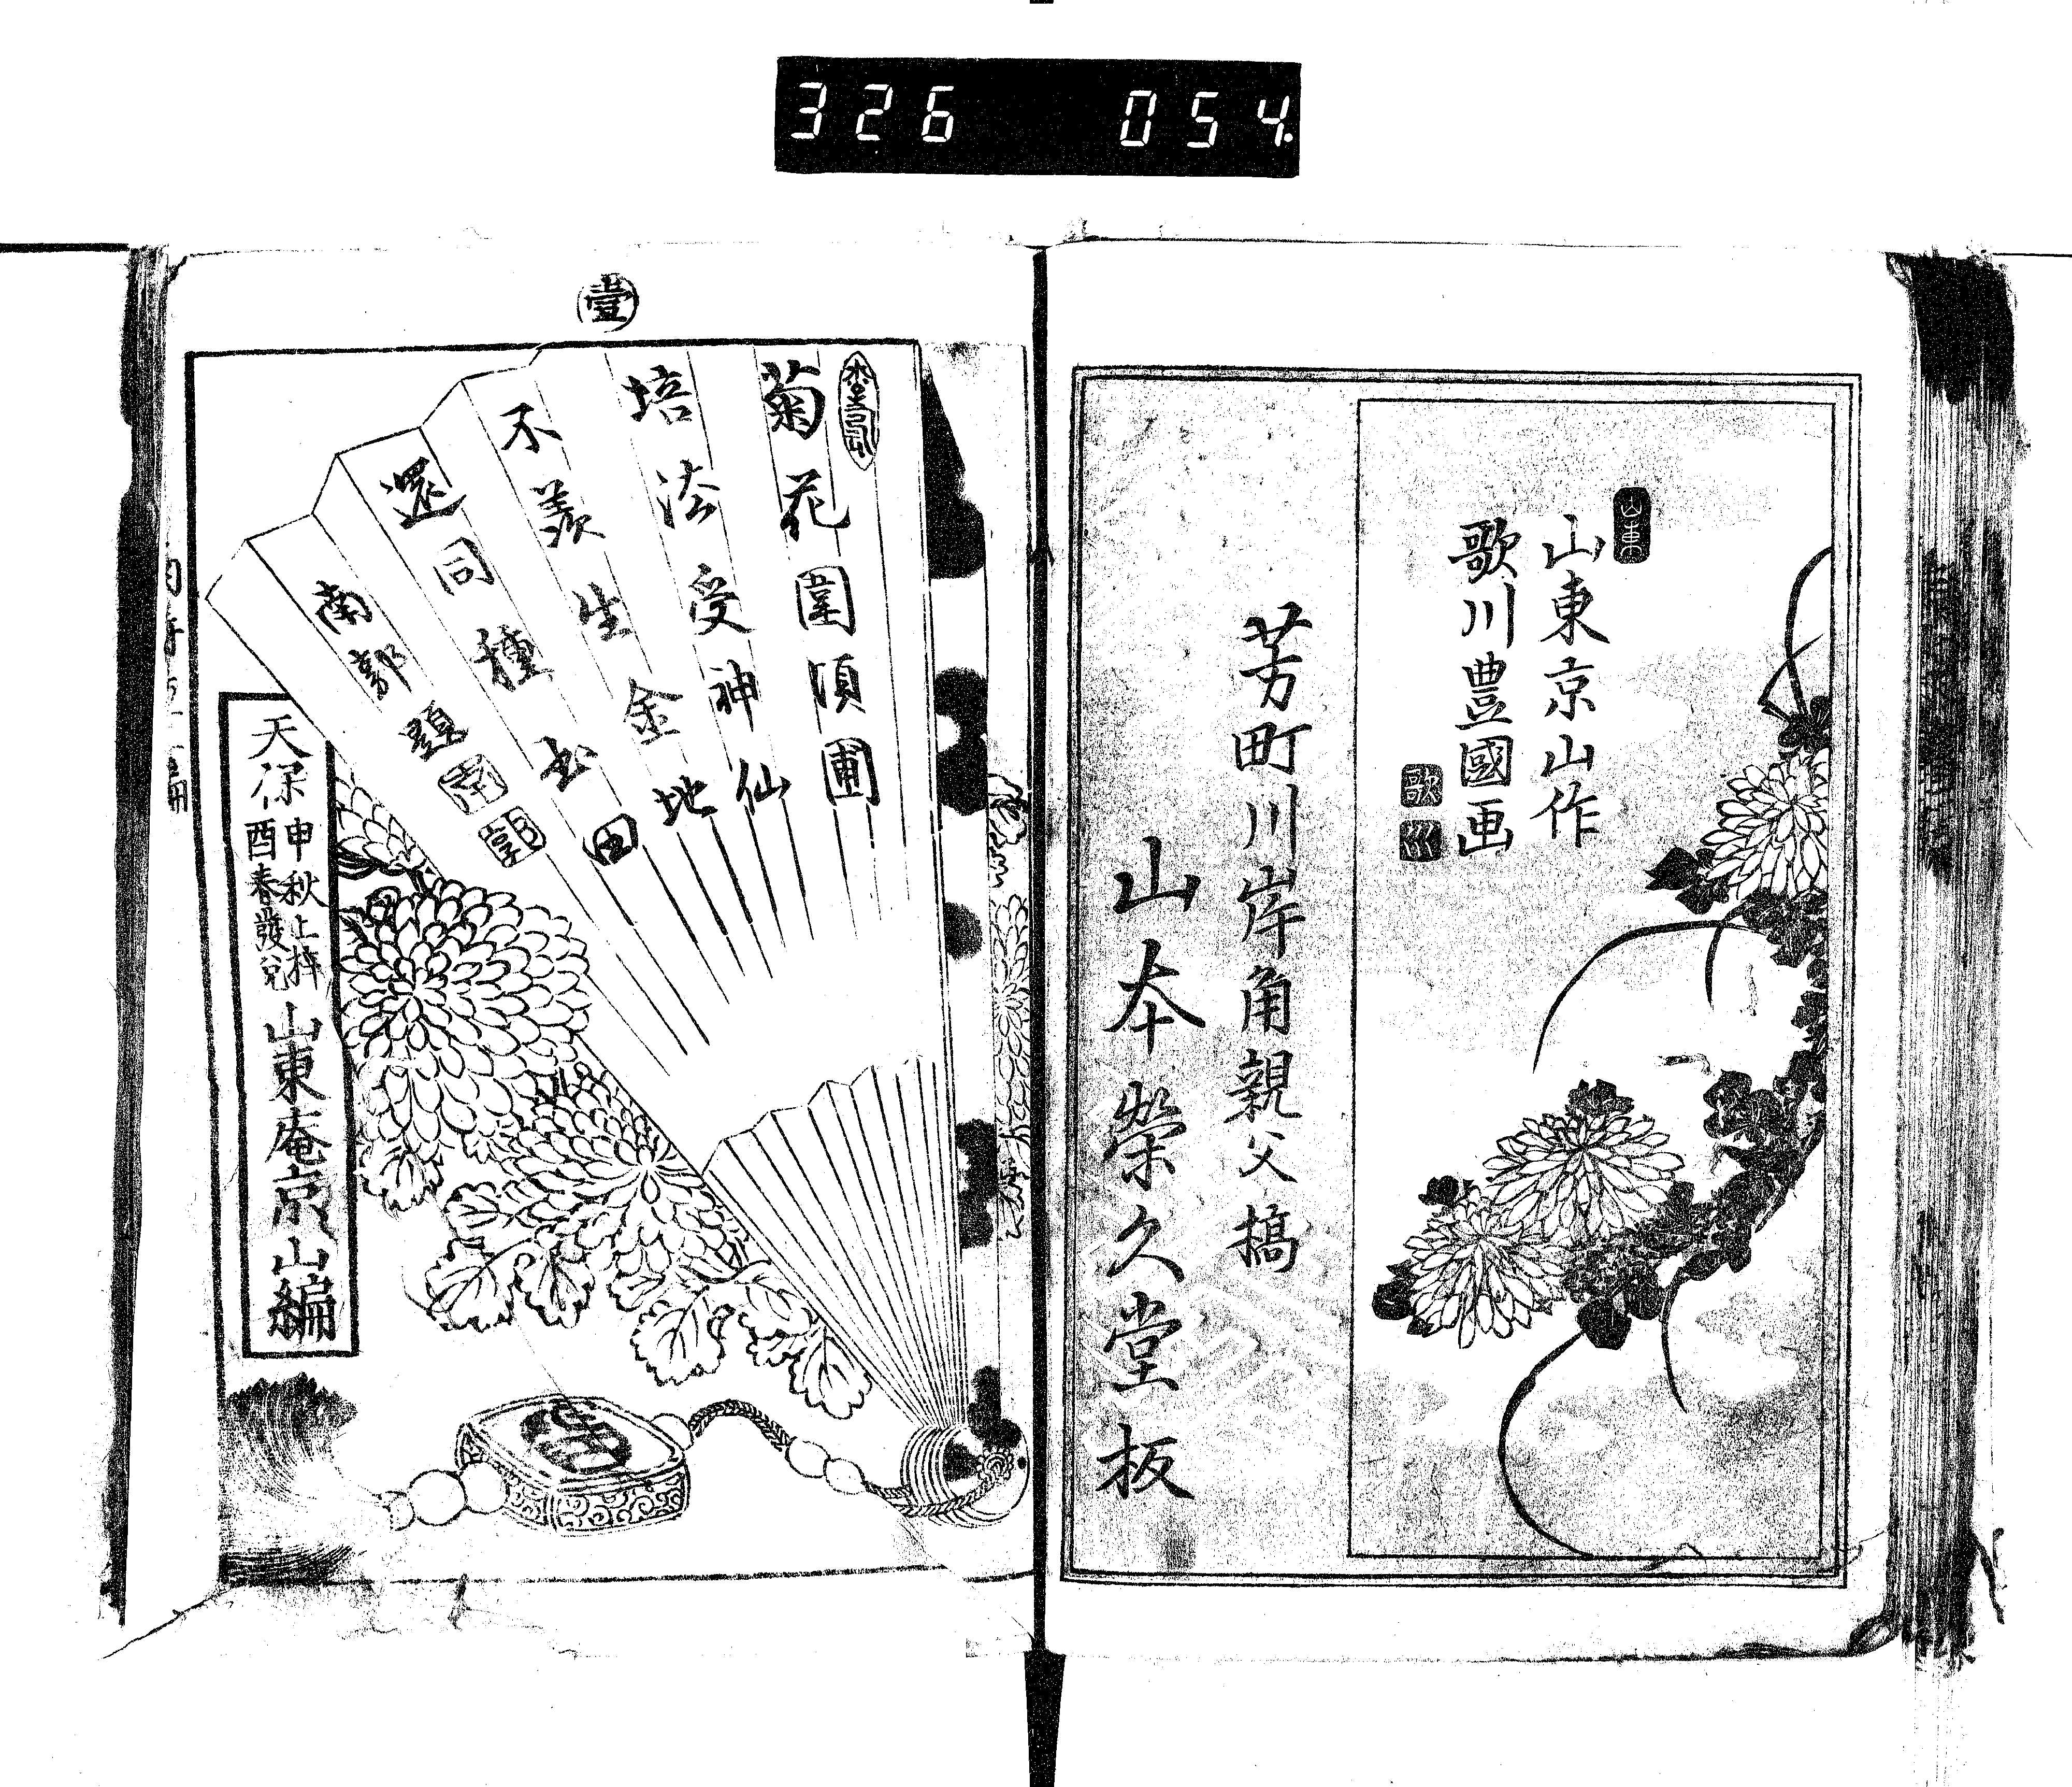 326 054.
山東京山作
歌川豊國画
歌川
芳町川岸角親父橋
山本榮久堂板
壹
菊花圍須圃
培法受神仙
不羨生金地
還同種玉田
南郭題
南郭
天保
申秋上梓
酉春發兌
山東庵京山編